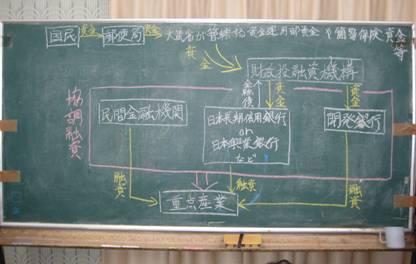 国民 資金 郵便局 資金 大蔵省が管轄化 資金運用部資金 や簡易保険資金等
資金
財政投融資機構
協調融資
資金
資金
民間金融機関
日本長期信用銀行
or
日本興業銀行
など
開発銀行
融資
融資
融資
重点産業